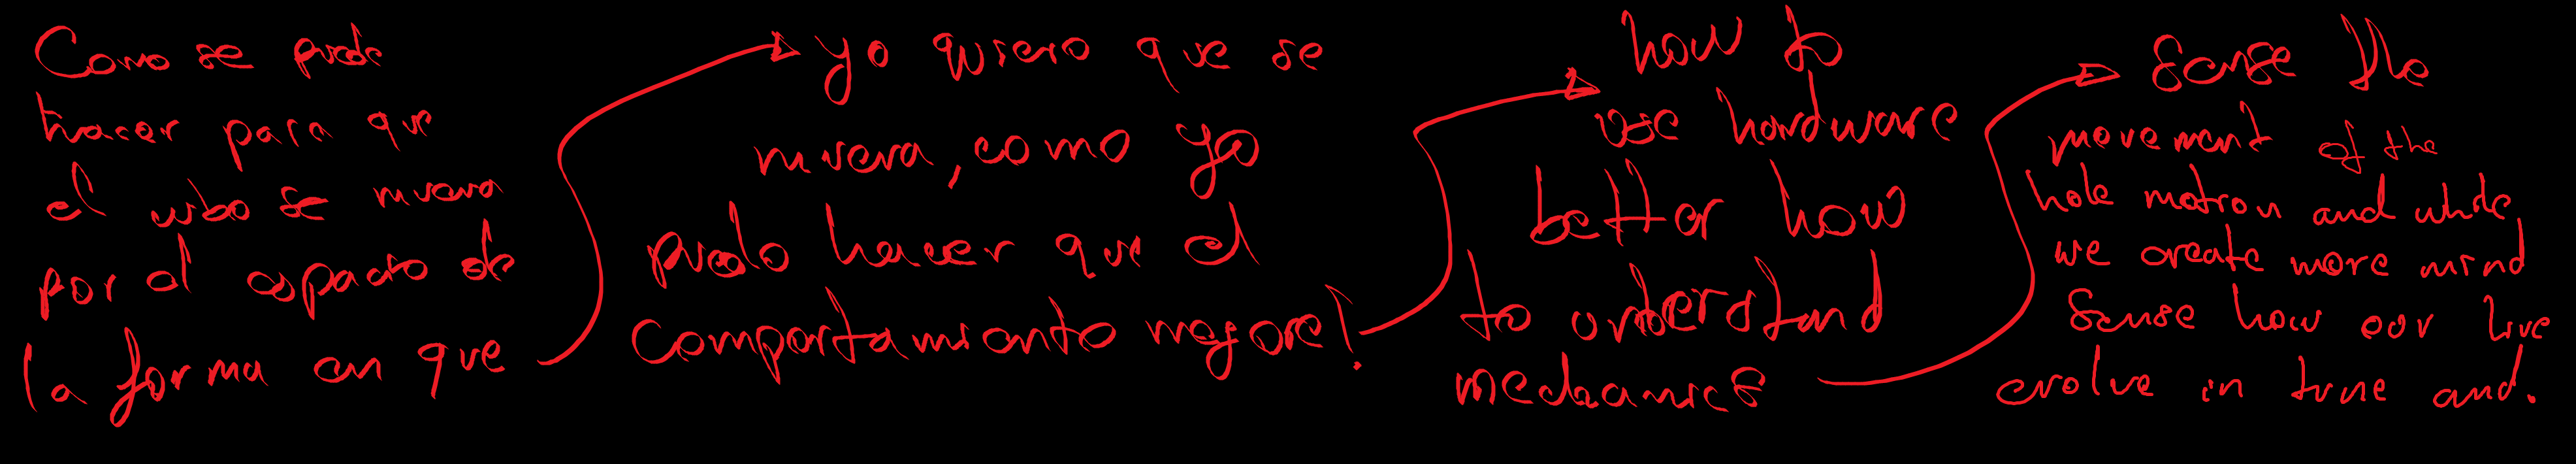 Como se puede
hacer para que
el cubo se mueva
por el espacio de
la forma en que
yo quiero que se
mueva, como yo
puedo hacer que el
comportamiento mejore?
how to
use hardware
better how
to understand
mechanics
Sense the
movement of the
hole motion and while
we create more mind
Sense how our live
evolve in time and.